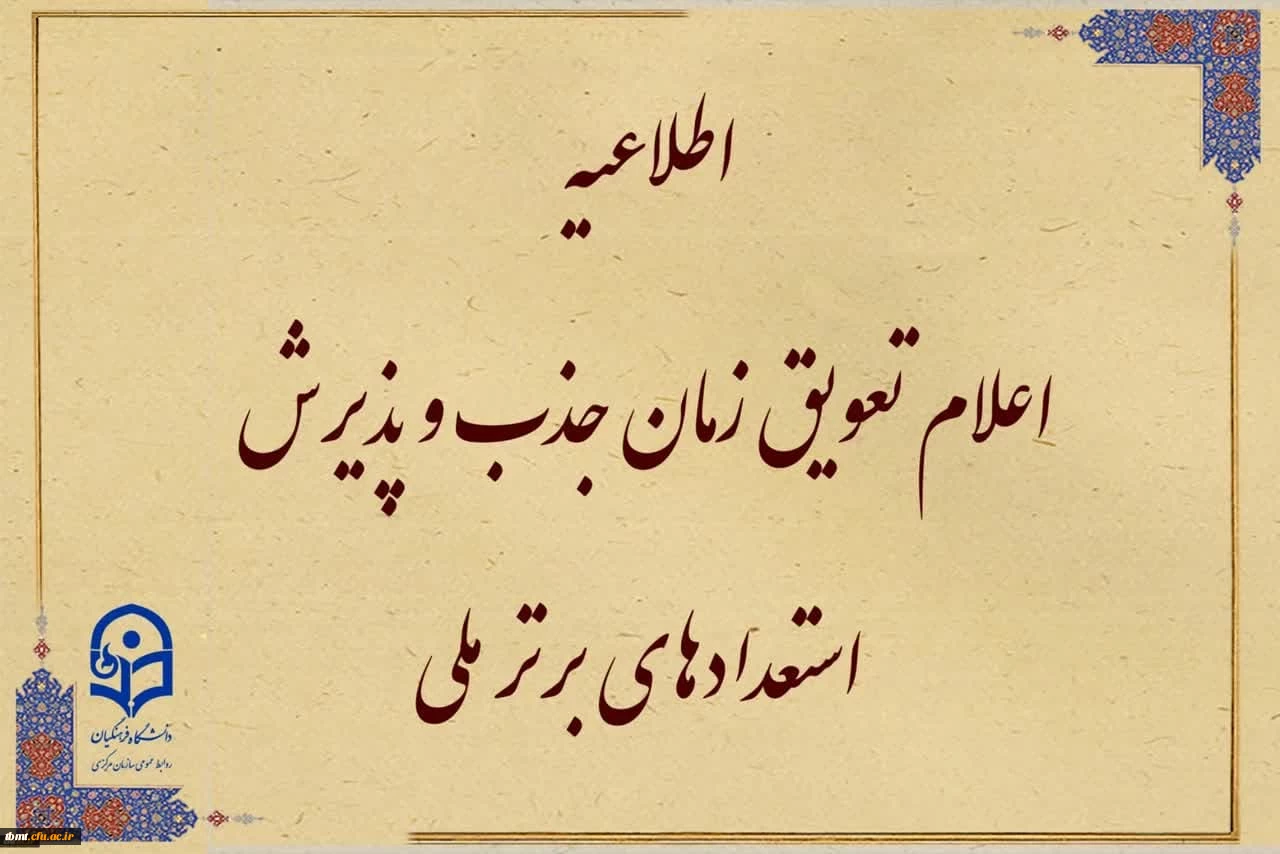 اطلاعیه
اعلام تعویق زمان جذب و پذیرش
استعدادهای برتر ملی
دانشگاه فرهنگیان
روابط عمومی سازمان مرکزی
tbmt.cfu.ac.ir